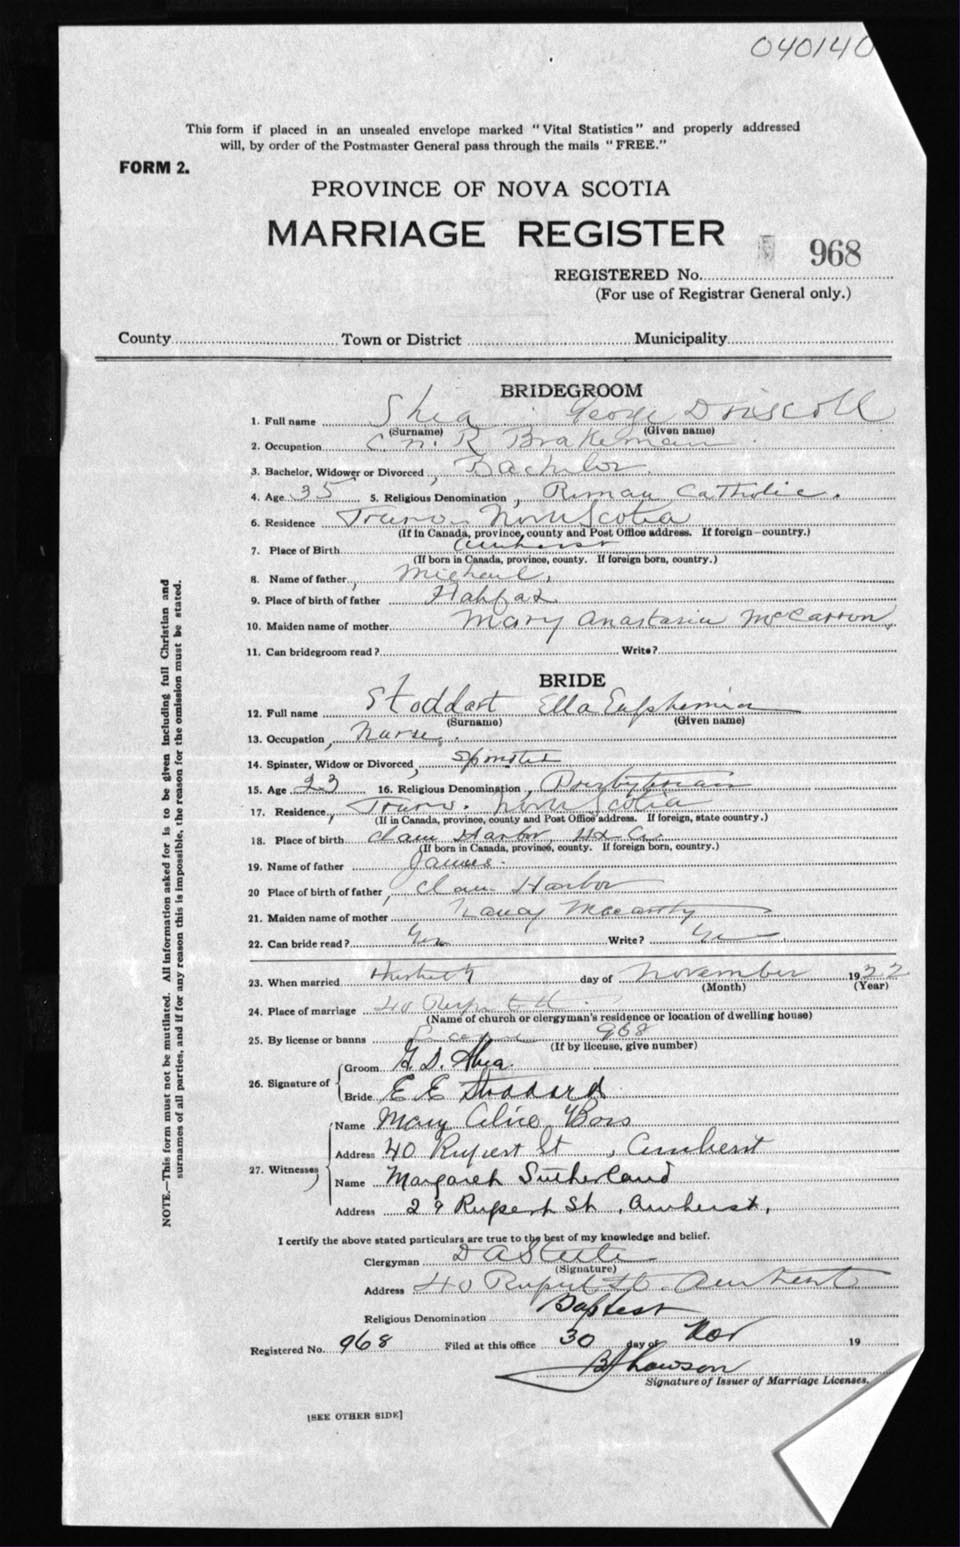 040140
This form if placed in an unsealed envelope marked "Vital Statistics" and properly addressed
will, by order of the Postmaster General pass through the mails "FREE."
FORM 2.
PROVINCE OF NOVA SCOTIA
MARRIAGE REGISTER
968
REGISTERED No.
(For use of Registrar General only.)
County Town or District Municipality
BRIDEGROOM
1. Full name Shea George Driscoll
(Surname) (Given name)
2. Occupation C. N. R Brakeman
3. Bachelor, Widower or Divorced Bachelor
4. Age 35 5. Religious Denomination Roman Catholic.
6. Residence Truro Nova Scotia
(If in Canada, province, county and Post Office address. If foreign—country.)
7. Place of Birth Amherst
(If born in Canada, province, county. If foreign born, country.)
8. Name of father Michael
9. Place of birth of father Halifax
10. Maiden name of mother Mary Anastasia McCarron
11. Can bridegroom read? Write?
BRIDE
12. Full name Stoddart Ella Euphemia
(Surname) (Given name)
13. Occupation Nurse
14. Spinster, Widow or Divorced Spinster
15. Age 23 16. Religious Denomination Presbyterian
17. Residence Truro. Nova Scotia
(If in Canada, province, county and Post Office address. If foreign, state country.)
18. Place of birth Clam Harbor Hx Co.
(If born in Canada, province, county. If foreign born, country.)
19. Name of father James.
20 Place of birth of father Clam Harbor
21. Maiden name of mother Nancy
22. Can bride read? Yes Write? Yes
23. When married day of November 1922
(Month) (Year)
24. Place of marriage 40 Rupert St
(Name of church or clergyman's residence or location of dwelling house)
25. By license or banns License 968
(If by license, give number)
26. Signature of Groom G D. Shea
Bride E E Stoddard
27. Witnesses Name Mary Alice
Address 40 Rupert St, Amherst
Name Margaret Sutherland
Address 29 Rupert St, Amherst,
I certify the above stated particulars are true to the best of my knowledge and belief.
Clergyman D A Steele
(Signature)
Address 40 Rupert St. Amherst
Religious Denomination Baptist
Registered No. 968 Filed at this office 30 day of Nov 19
Signature of Issuer of Marriage Licenses.
[SEE OTHER SIDE]
NOTE.—This form must not be mutilated. All information asked for is to be given including full Christian and
surnames of all parties, and if for any reason this is impossible, the reason for the omission must be stated.